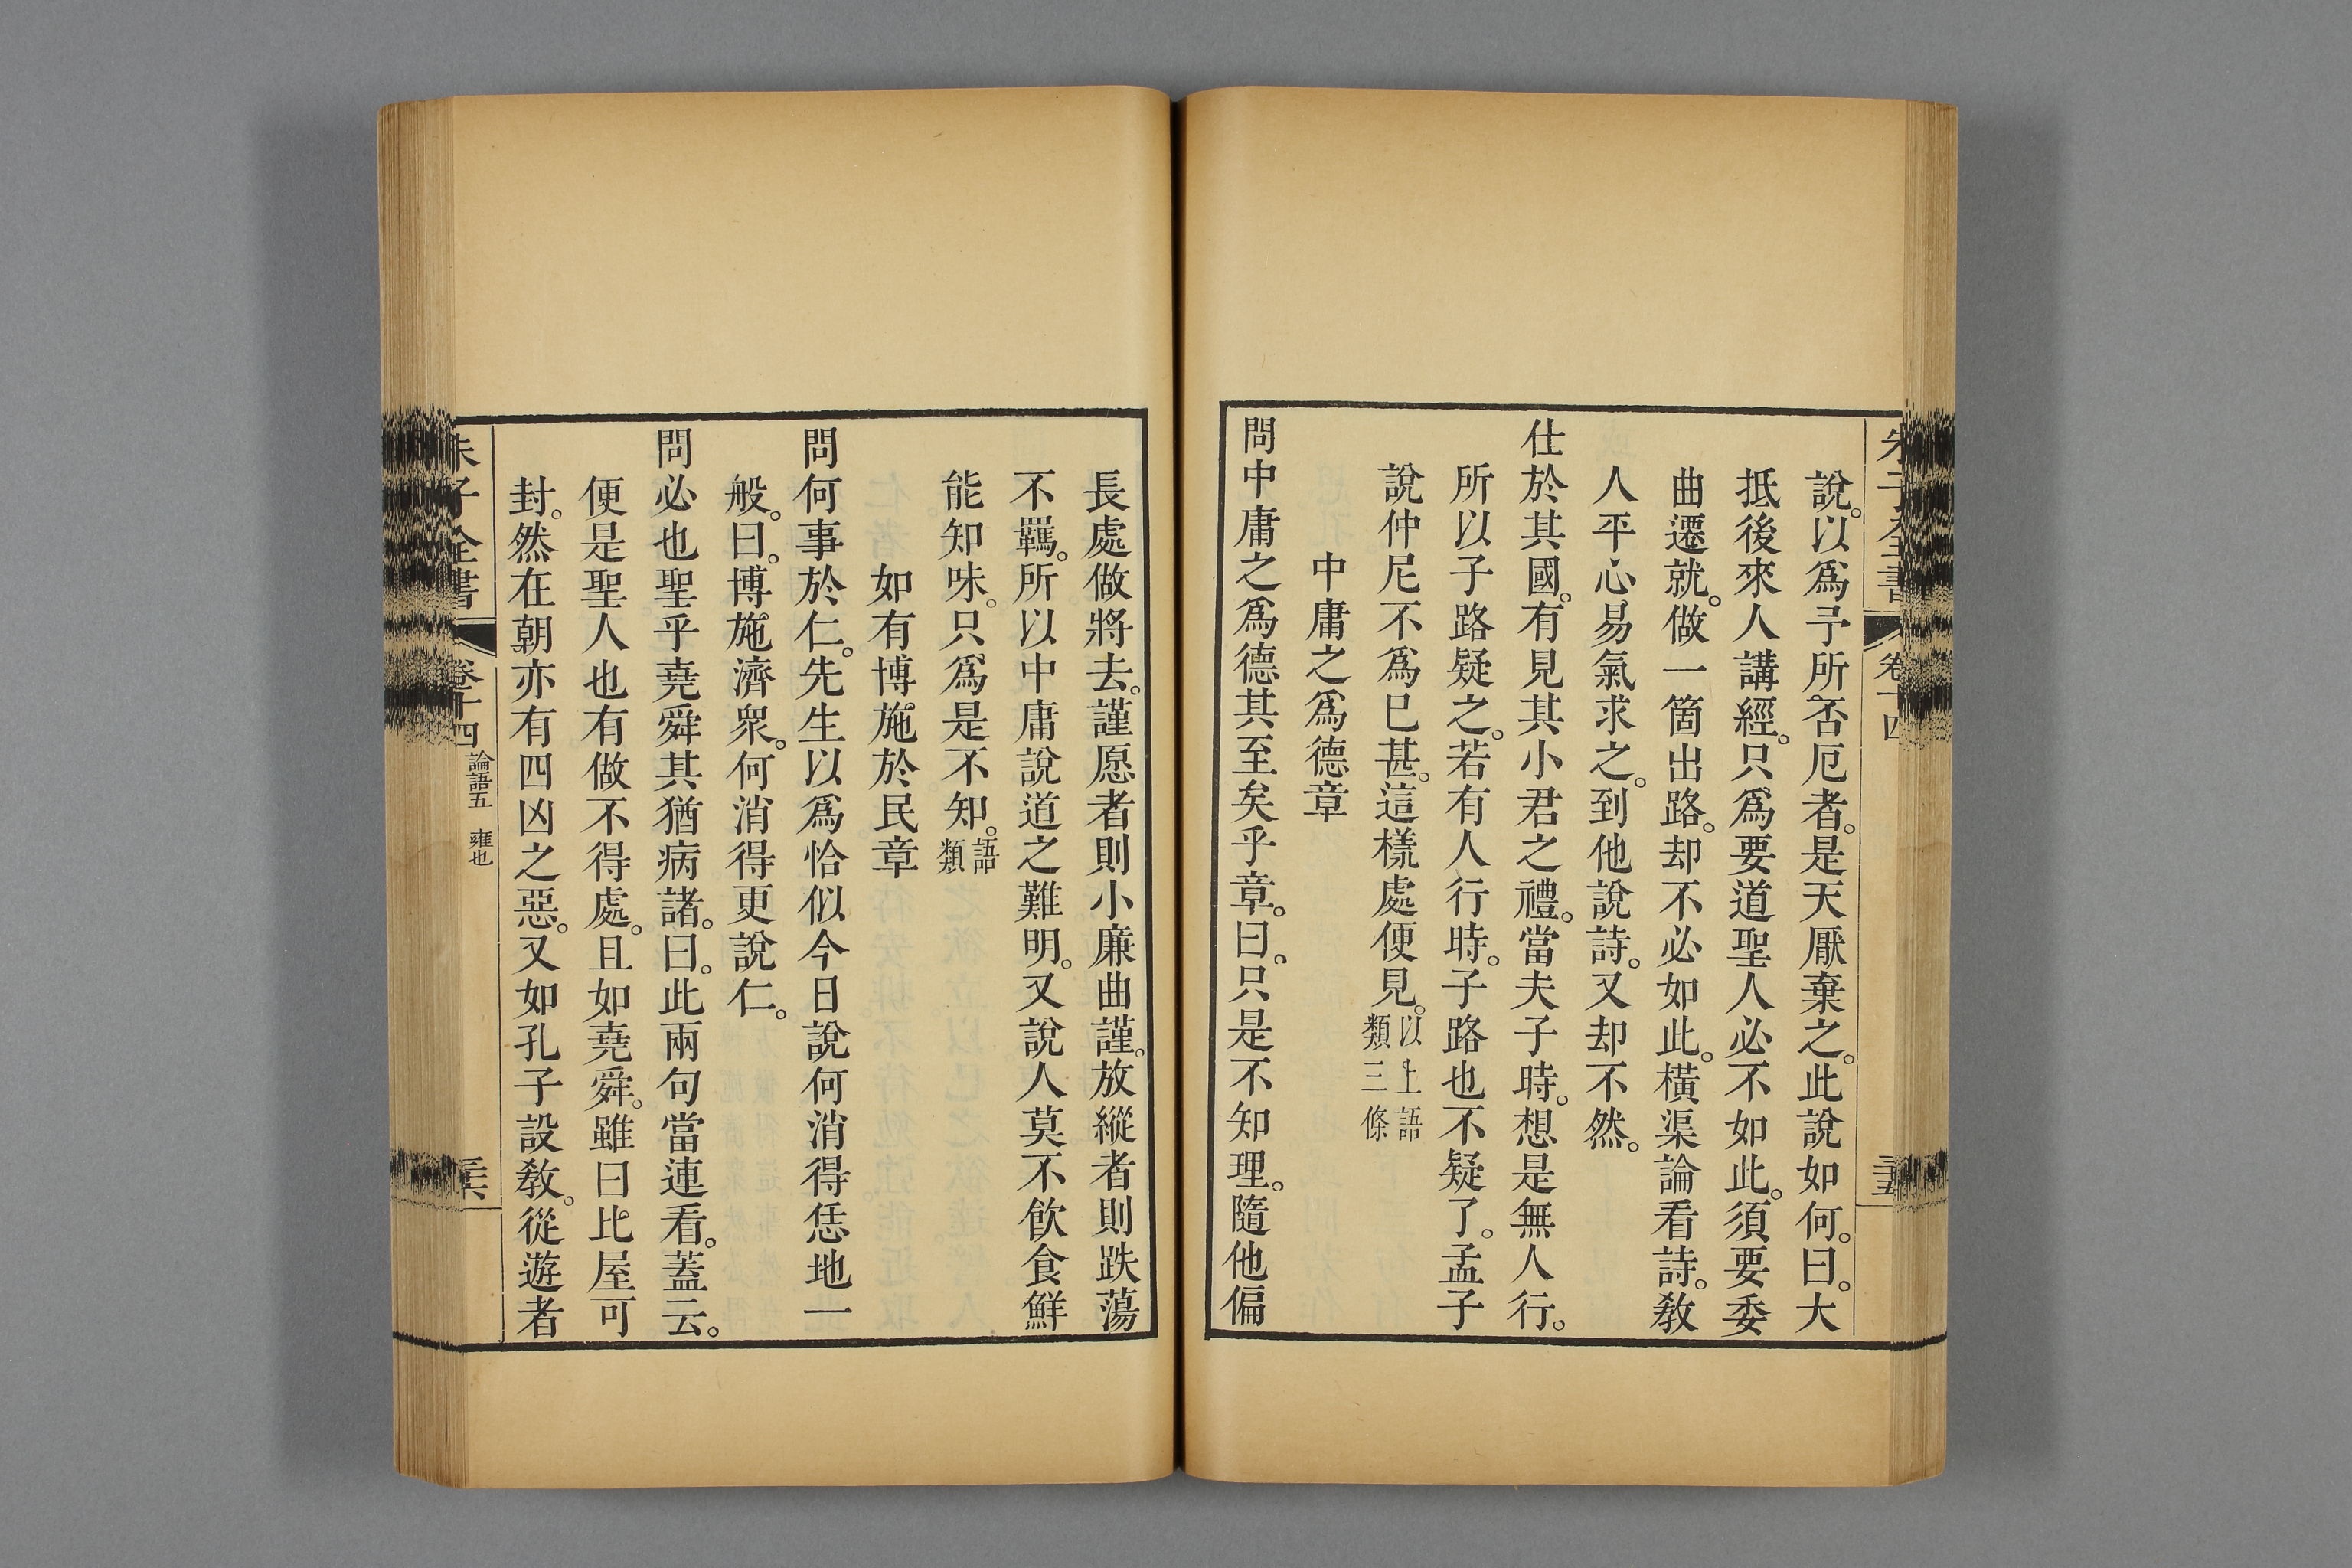 朱子全書 卷十四
說。以爲予所否厄者。是天厭棄之。此說如何。曰。大
抵後來人講經。只爲要道聖人必不如此。須要委
曲遷就。做一箇出路。却不必如此。橫渠論看詩。敎
人平心易氣求之。到他說詩。又却不然。
仕於其國。有見其小君之禮。當夫子時。想是無人行。
所以子路疑之。若有人行時。子路也不疑了。孟子
說仲尼不爲已甚。這樣處便見。以上語
類三條
中庸之爲德章
問中庸之爲德其至矣乎章。曰。只是不知理。隨他偏
長處做將去。謹愿者則小廉曲謹。放縱者則跌蕩
不羈。所以中庸說道之難明。又說人莫不飮食鮮
能知味。只爲是不知。語
類
如有博施於民章
問何事於仁。先生以爲恰似今日說何消得恁地一
般。曰。博施濟衆。何消得更說仁。
問必也聖乎堯舜其猶病諸。曰。此兩句當連看。蓋云。
便是聖人也有做不得處。且如堯舜。雖曰比屋可
封。然在朝亦有四凶之惡。又如孔子設敎。從遊者
朱子全書 卷十四 論語五 雍也